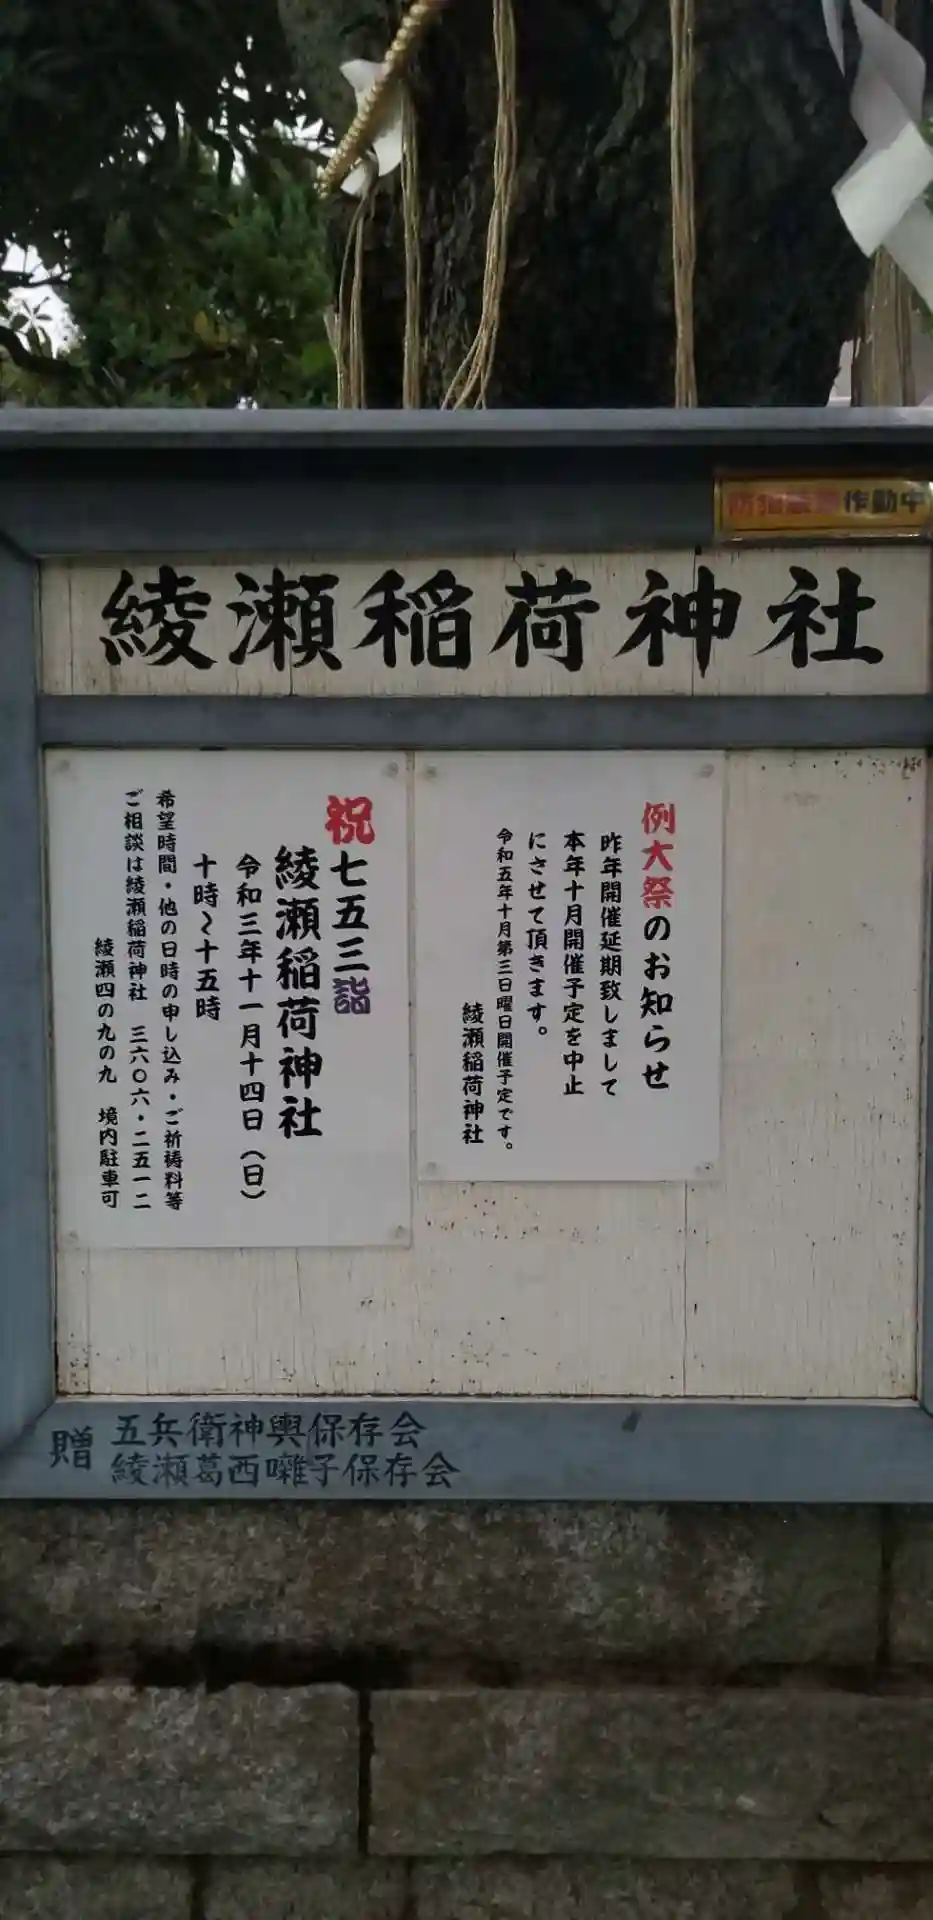 防犯装置作動中
綾瀬稲荷神社
例大祭のお知らせ
昨年開催延期致しまして
本年十月開催予定を中止
にさせて頂きます。
令和五年十月第三日曜日開催予定です。
綾瀬稲荷神社
祝七五三詣
綾瀬稲荷神社
令和三年十一月十四日（日）
十時〜十五時
希望時間・他の日時の申し込み・ご祈祷料等
ご相談は綾瀬稲荷神社 三六〇六・二五一二
綾瀬四の九の九 境内駐車可
贈
五兵衛神輿保存会
綾瀬葛西囃子保存会